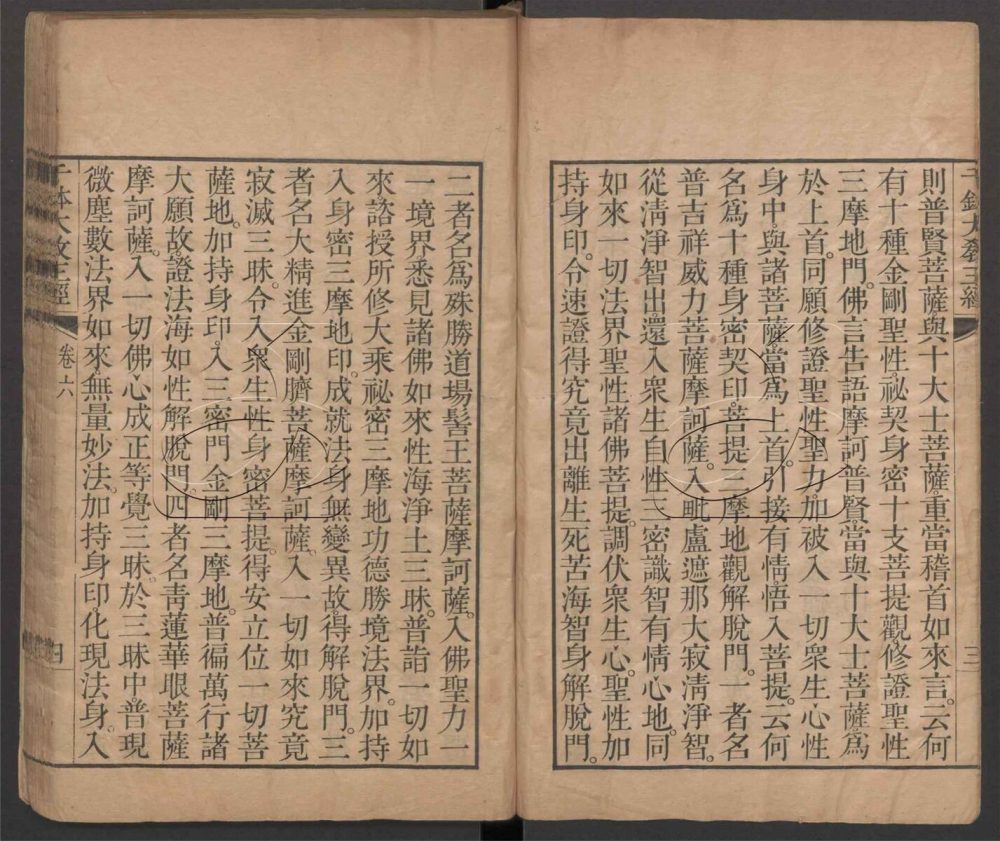 則普賢菩薩與十大士菩薩。重當稽首如來言。云何
有十種金剛聖性。祕契身密十支菩提觀。修證聖性
三摩地門。佛言告語摩訶普賢當與十大士菩薩爲
於上首。同願修證聖性聖力。加被入一切衆生心性
身中。與諸菩薩當爲上首。引接有情悟入菩提。云何
名爲十種身密契印。菩提三摩地觀解脫門。一者名
普吉祥威力菩薩摩訶薩。入毗盧遮那大寂清淨智。
從清淨智出。還入衆生自性三密識智有情心地。同
如來一切法界聖性諸佛菩提。調伏衆生心。聖性加
持身印。令速證得究竟出離生死苦海智身解脫門。
二者名爲殊勝道場髻王菩薩摩訶薩。入佛聖力一
一境界悉見諸佛如來性海淨土三昧。普詣一切如
來諮授所修大乘祕密三摩地功德勝境法界。加持
入身密三摩地印。成就法身無變異故。得解脫門。三
者名大精進金剛臍菩薩摩訶薩。入一切如來究竟
寂滅三昧。令入衆生性身密菩提。得安立位一切菩
薩地。加持身印。入三密門金剛三摩地。普徧萬行諸
大願故。證法海如性解脫門。四者名靑蓮華眼菩薩
摩訶薩。入一切佛心成正等覺三昧。於三昧中普現
微塵數法界如來無量妙法。加持身印。化現法身。入
卷六
三